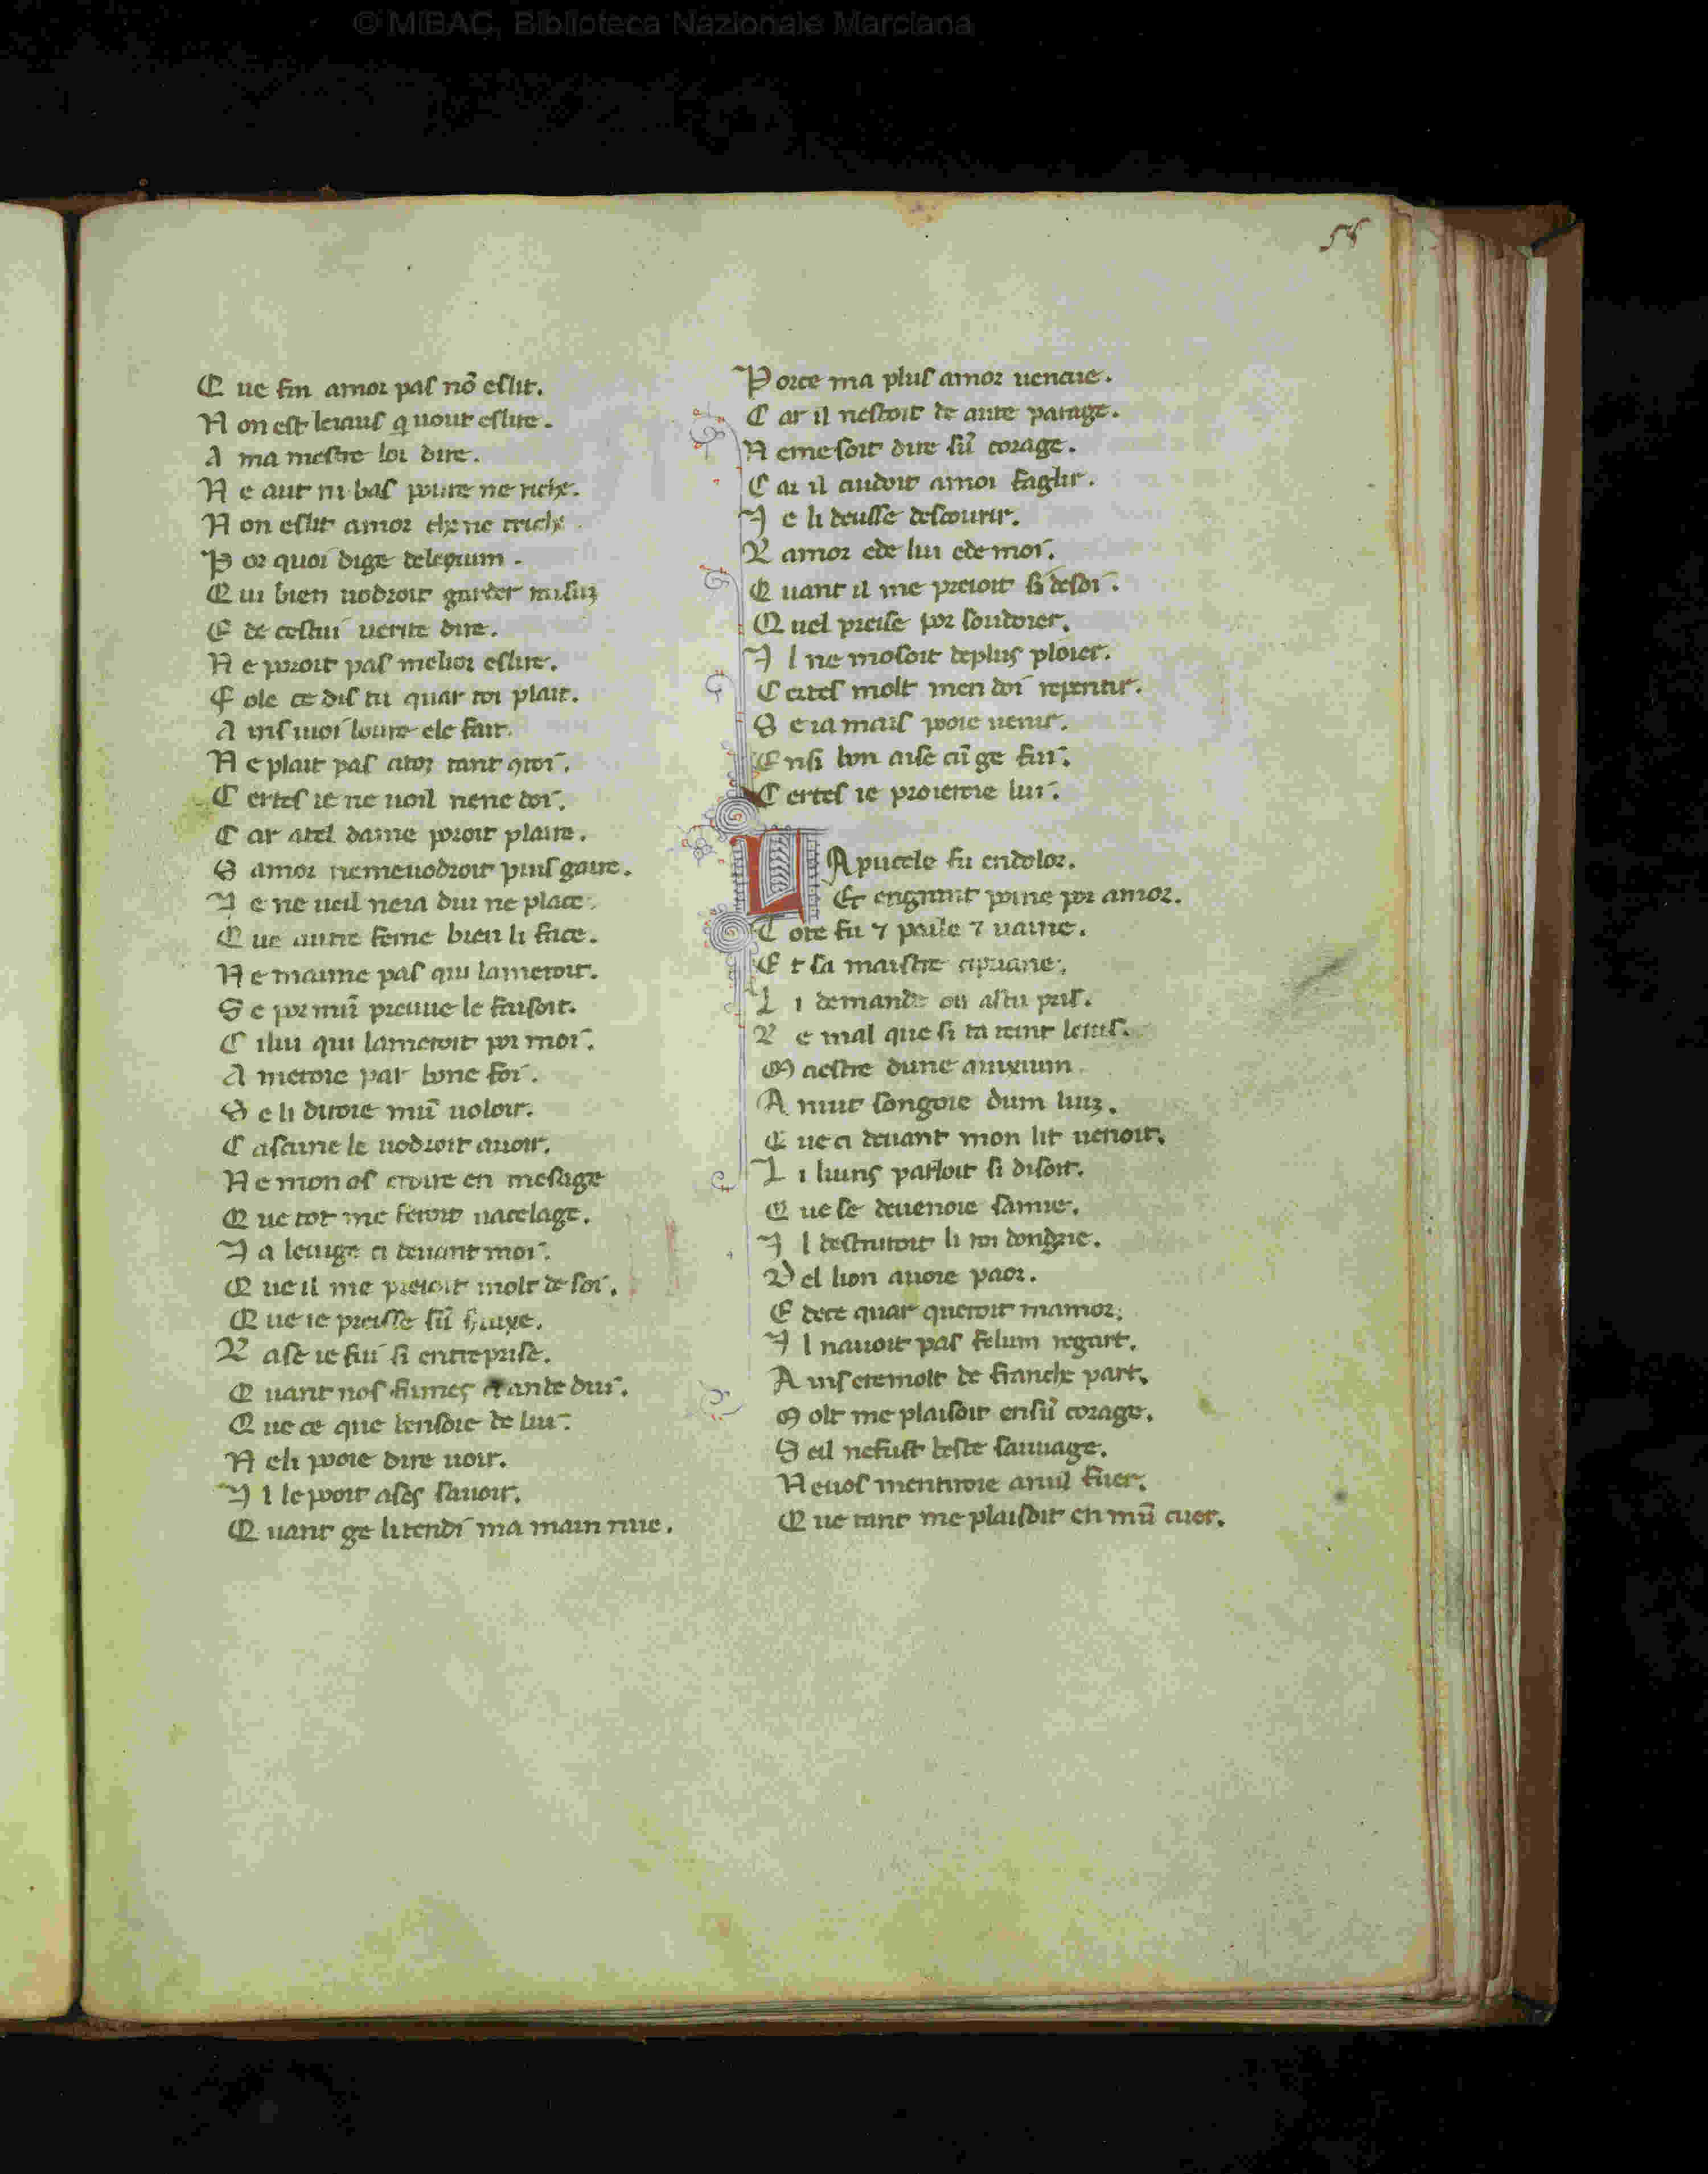 © MiBAC, Biblioteca Nazionale Marciana
58
Q ue fin amor pas nō eslit.
N on est leiaus q uout eslire.
A ma mestre loi dire.
N e aut ni bas poure ne riche.
N on eslit amor che ne triche.
P or quoi dige delegium.
Q ui bien uodroit garder
E de cestui uerite dire.
N e poroit pas melior eslire.
F ole ce dis tu quar toi plait.
A ins moi loure ele fait.
N e plait pas ator tant
C ertes ie ne uoil nene doi.
C ar atel dame poroit plaire.
S amor nemeuodroit puis gaire.
I e ne ueil neia diu ne place.
Q ue autre feme bien li face.
N e maime pas qui lameroit.
S e por mū preuue le faisoit.
C ilui qui lameroit por moi.
A meroie par bone foi.
S e li diroie mū uoloir.
C ascune le uodroit auoir.
N e mon os croire en mesage
Q ue tot me feroit uacelage.
I a leuige ci deuant moi.
Q ue il me preioit molt de soi.
Q ue ie preisse sū
R ase ie fui si entreprise.
Q uant nos fumes anbe dui.
Q ue ce que lensoie de lui.
N eli pooie dire uoir.
I l le pooit ases sauoir.
Q uant ge li tendi ma main nue.
P orce ma plus amor uencue.
C ar il nestoit de aute parage.
N emesoit dire sū corage.
C ar il cuidoit amoi faglir.
I e li deusse descourir.
R amor ede lui ede moi.
Q uant il me preioit si desoi.
Q uel preise por soudoier.
I l ne mosoit deplus ploier.
C ertes molt men doi repentir.
S e ia mais pooie uenir.
E nsi bon aise cū ge fui.
C ertes ie proieroie lui.
L A pucele fu endolor.
Et engrant poine por amor.
T ote fu 7 paile 7 uaine.
E t sa maistre
L i demande ou astu pris.
R e mal que si ta teint leuis.
M aestre dune auixium
A nuit songoie dum
Q ue ci deuant mon lit uenoit.
L i parloit si disoit.
Q ue se deuenoie samie.
I l destruiroit li roi dongrie.
D el lion auoie paor.
E dece quar queroit mamor.
I l nauoit pas felum regart.
A ins eremolt de franche part.
M olt me plaisoit ensū corage.
S eil nefust beste sauuage.
N euos mentiroie anuil fuer.
Q ue tant me plaisoit en mū cuer.